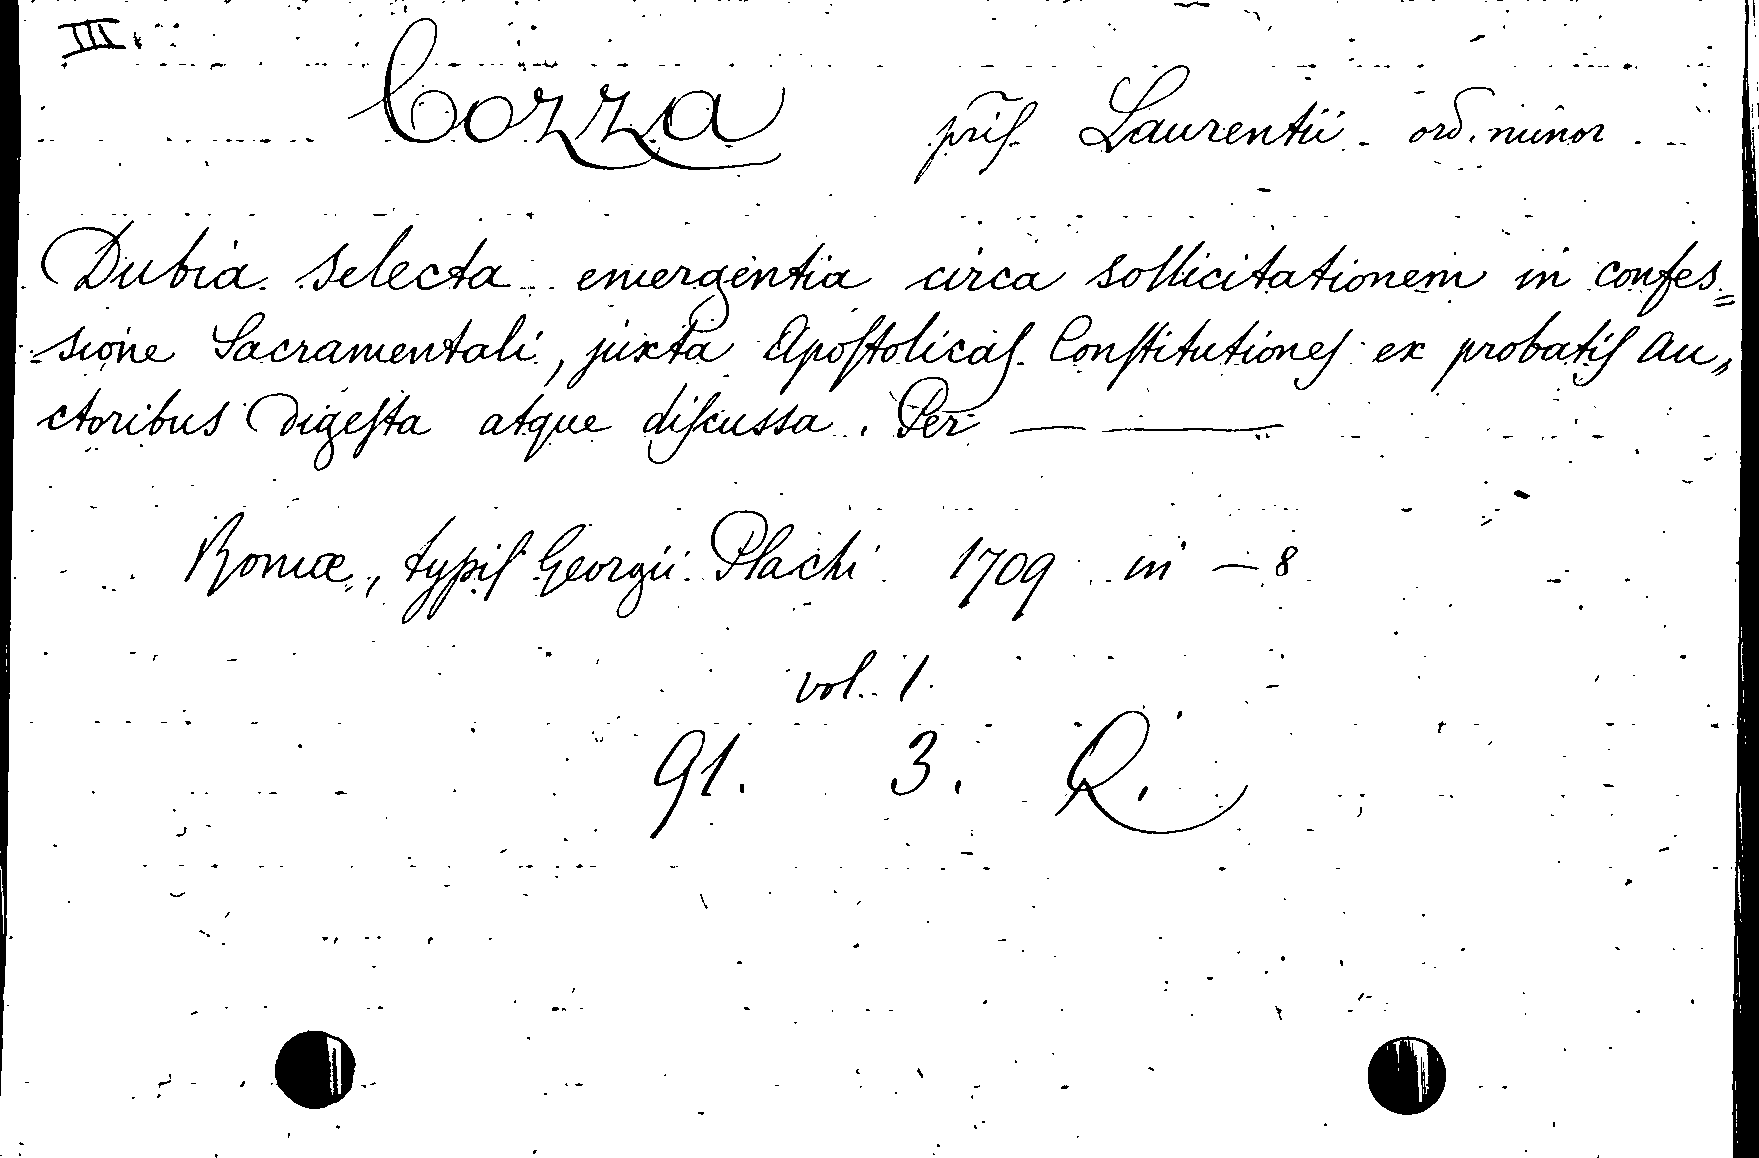 III.
Cozza prīs. Laurentii ord. minor
Dubia selecta emergentia circa sollicitationem in confes=
=sione Sacramentali, juxta Apostolicas Constitutiones ex probatis au„
ctoribus digesta atque discussa. Per — ——
Romæ, typis Georgii Plachi 1709 in — 8
vol. 1.
91. 3. Q.